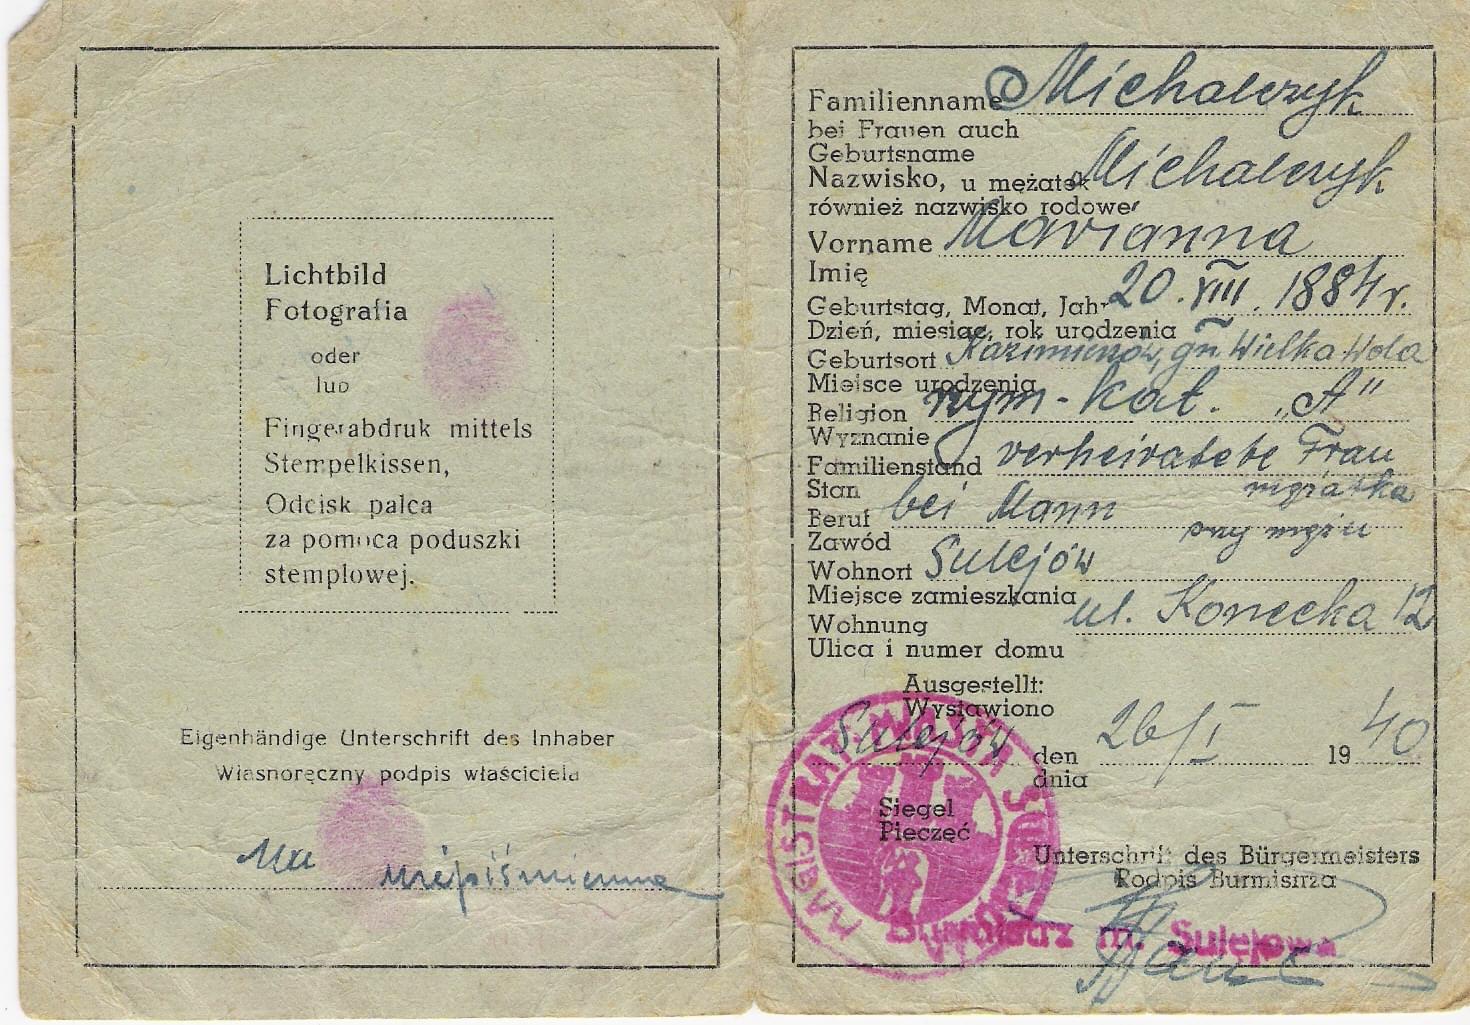 Lichtbild
Fotografia
oder
lub
Fingerabdruk mittels
Stempelkissen,
Odcisk palca
za pomocą poduszki
stemplowej.
Eigenhändige Unterschrift des Inhaber
Własnoręczny podpis właściciela
niepiśmienna
Familienname Michalczyk
bei Frauen auch
Geburtsname
Nazwisko, u mężatek Michalczyk
również nazwisko rodowe
Vorname Marianna
Imię
Geburtstag, Monat, Jahr 20. VIII. 1884 r.
Dzień, miesiąc, rok urodzenia
Geburtsort Kazimierzów, gm Wielka Wola
Miejsce urodzenia
Religion rzym-kat. „A"
Wyznanie
Familienstand verheiratete Frau
Stan mężatka
Beruf bei Mann
Zawód przy mężu
Wohnort Sulejów
Miejsce zamieszkania
Wohnung ul. Konecka 12
Ulica i numer domu
Ausgestellt:
Wystawiono
Sulejów den 26/I 1940
dnia
Siegel
Pieczęć
MAGISTRAT MIASTA
Unterschrift des Bürgermeisters
Podpis Burmistrza
Burmistrz m. Sulejowa